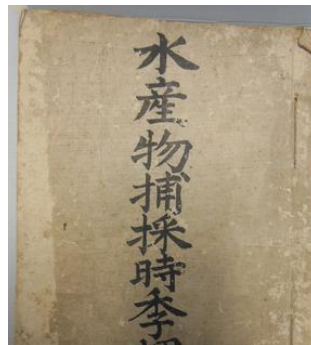 水産物捕採時季